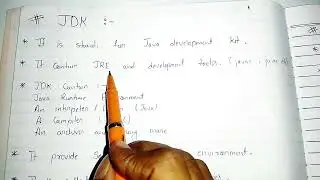 # JDK :-
* It is stands for Java development kit.
* It Contain JRE and development tools. (javac, java
* JDK Contain :-
Java Runtime Environment
An interpreter / (Java)
A Compiler
An archive many more
* It provide environment.